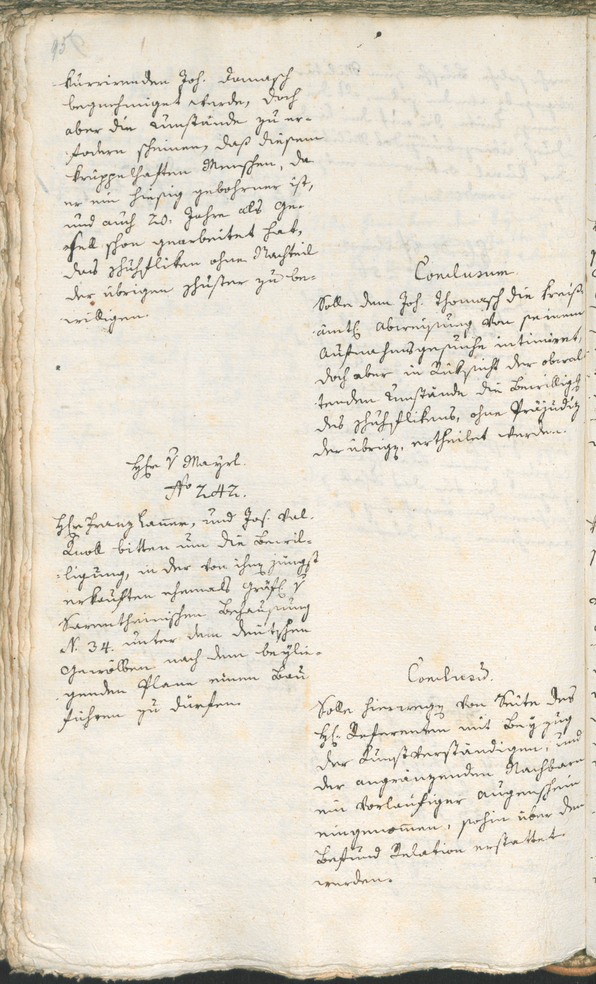 kurrirenden Joh. Damasch
begnehmiget werde, doch
aber die Umstände zu er-
fodern scheinen, daß diesem
kruppelhaften Menschen, da
er ein hiesig gebohrner ist,
und auch 20 Jahre als Ge-
sell schon gearbeitet hat,
das Schuhfliken ohne Nachteil
der übrigen Schuster zu be-
willigen.
Conclusum.
Solle dem Joh. Thomasch die kreis-
ämtl. Abweisung von seinem
Aufnahmsgesuche intimiret,
doch aber in Rüksicht der obwal-
tenden Umstände die Bewillig.
des Schuhflikens, ohne Präjudiz
der übrig., ertheilet werden.
Hr. v. Mayrl.
No 242.
Hr. Franz Hauer, und Jos. Val.
Knoll bitten um die Bewil-
ligung, in der von ihnen jüngst
erkauften ehemals Gräfl. v.
Sarentheinischen Behausung
N. 34. unter den deutschen
Gewölben nach dem beylie-
genden Plane einen Bau
führen zu dürfen.
Conclusum.
Solle hierwegen von Seite des
H. Referenten mit Beyzug
der Kunstverständigen, und
der angränzenden Nachbarn
ein vorläufiger Augenschein
eingenommen, sohin über den
Befund Relation erstattet
werden.